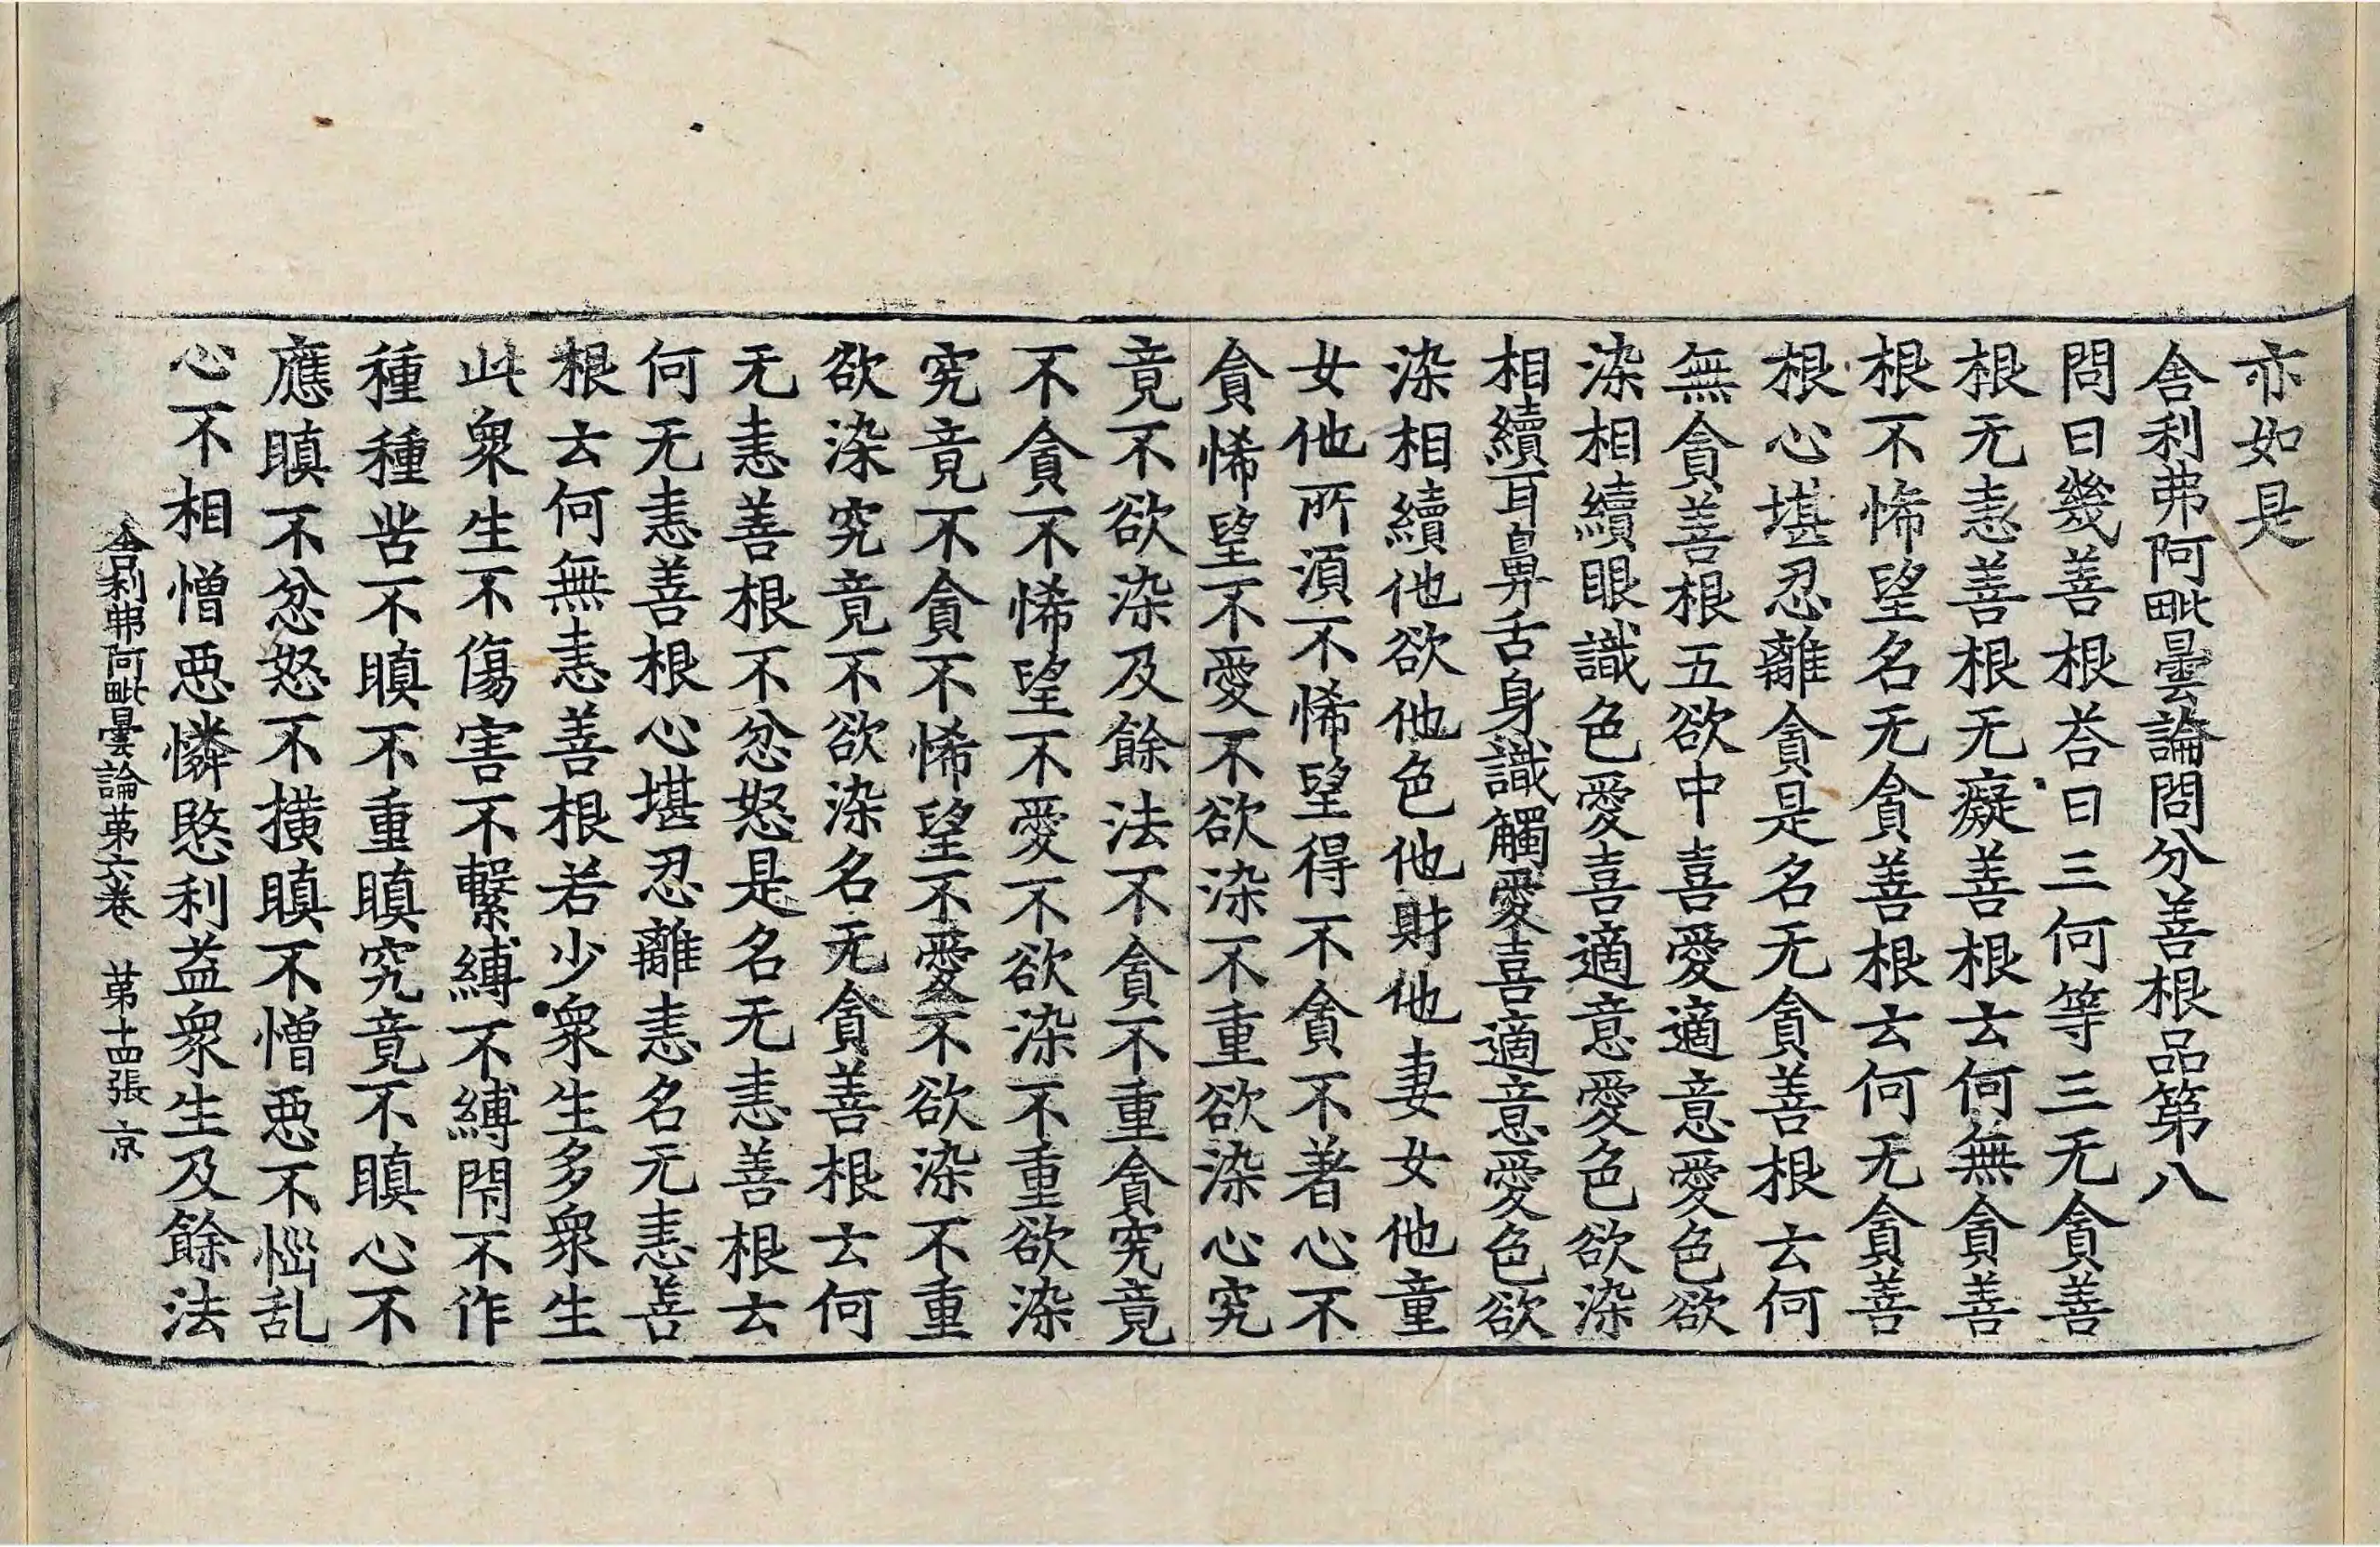 亦如是
舎利弗阿毗曇論問分善根品第八
問曰幾善根荅曰三何等三无貪善
根无恚善根无癡善根云何無貪善
根不悕望名无貪善根云何无貪善
根心堪忍離貪是名无貪善根云何
無貪善根五欲中喜愛適意愛色欲
染相續眼識色愛喜適意愛色欲染
相續耳鼻舌身識觸愛喜適意愛色欲
染相續他欲他色他財他妻女他童
女他所湏不悕望得不貪不著心不
貪悕望不愛不欲染不重欲染心究
竟不欲染及餘法不貪不重貪究竟
不貪不悕望不愛不欲染不重欲染
究竟不貪不悕望不愛不欲染不重
欲染究竟不欲染名无貪善根云何
无恚善根不忿怒是名无恚善根云
何无恚善根心堪忍離恚名无恚善
根云何無恚善根若少衆生多衆生
此衆生不傷害不繫縛不縛閇不作
種種苦不瞋不重瞋究竟不瞋心不
應瞋不忿怒不橫瞋不憎惡不惱乱
心不相憎惡憐愍利益衆生及餘法
舎利弗阿毗曇論苐六巻　苐十四張　京